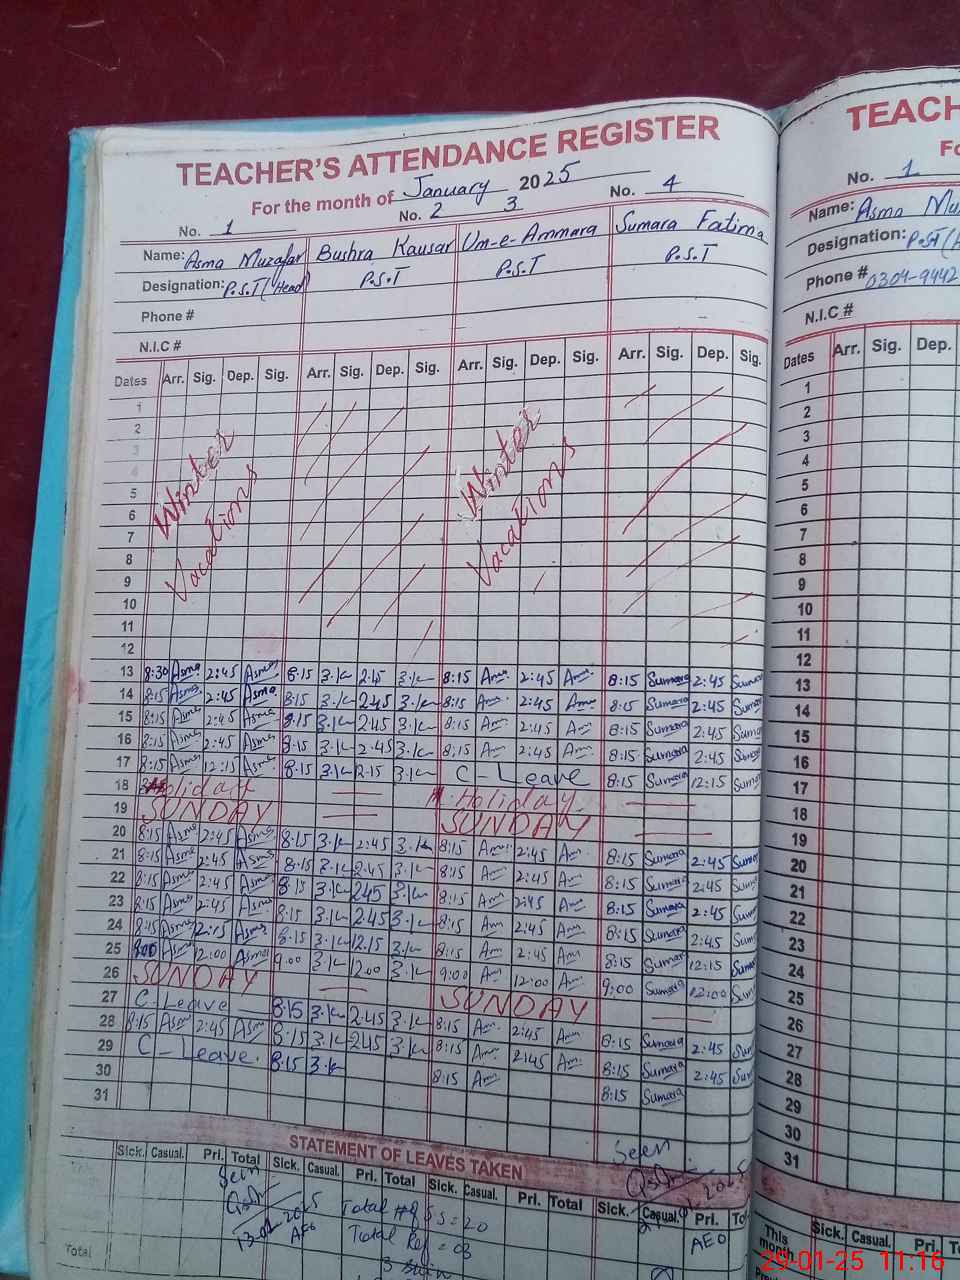 TEACHER'S ATTENDANCE REGISTER
For the month of January 2025
No. 1 No. 2 3 No. 4
Name: Asma Muzafar Bushra Kausar Um-e-Ammara Sumara Fatima
Designation: P.S.T (Head) P.S.T P.S.T P.S.T
Phone #
N.I.C #
Dates Arr. Sig. Dep. Sig. Arr. Sig. Dep. Sig. Arr. Sig. Dep. Sig. Arr. Sig. Dep. Sig.
1
2
3
4
5
6
7
8
9
10
11
12
Winter Vacations Winter Vacations
13 8:30 Asma 2:45 Asma 8:15 3.k 2:45 3.k 8:15 Am 2:45 Am 8:15 Sumara 2:45 Sumara
14 8:15 Asma 2:45 Asma 8:15 3.k 2:45 3.k 8:15 Am 2:45 Am 8:15 Sumara 2:45 Sumara
15 8:15 Asma 2:45 Asma 8:15 3.k 2:45 3.k 8:15 Am 2:45 Am 8:15 Sumara 2:45 Sumara
16 8:15 Asma 2:45 Asma 8:15 3.k 2:45 3.k 8:15 Am 2:45 Am 8:15 Sumara 2:45 Sumara
17 8:15 Asma 12:15 Asma 8:15 3.k 12:15 3.k C-Leave 8:15 Sumara 12:15 Sumara
18 Holiday Holiday
19 SUNDAY SUNDAY
20 8:15 Asma 2:45 Asma 8:15 3.k 2:45 3.k 8:15 Am 2:45 Am 8:15 Sumara 2:45 Sumara
21 8:15 Asma 2:45 Asma 8:15 3.k 2:45 3.k 8:15 Am 2:45 Am 8:15 Sumara 2:45 Sumara
22 8:15 Asma 2:45 Asma 8:15 3.k 2:45 3.k 8:15 Am 2:45 Am 8:15 Sumara 2:45 Sumara
23 8:15 Asma 2:45 Asma 8:15 3.k 2:45 3.k 8:15 Am 2:45 Am 8:15 Sumara 2:45 Sumara
24 8:15 Asma 12:15 Asma 8:15 3.k 12:15 3.k 8:15 Am 2:45 Am 8:15 Sumara 12:15 Sumara
25 Asma 12:00 Asma 9:00 3.k 12:00 3.k 9:00 Am 12:00 Am 9:00 Sumara 12:00 Sumara
26 SUNDAY SUNDAY
27 C-Leave 8:15 3.k 2:45 3.k 8:15 Am 2:45 Am 8:15 Sumara 2:45 Sum
28 8:15 Asma 2:45 Asm 8:15 3.k 2:45 3.k 8:15 Am 2:45 Am 8:15 Sumara 2:45 Sum
29 C-Leave. 8:15 3.k 8:15 Am 8:15 Sumara
30
31
STATEMENT OF LEAVES TAKEN
Sick. Casual. Pri. Total Sick. Casual. Pri. Total Sick. Casual. Pri. Total Sick. Casual. Pri. Tot
Seen Seen
13-01-2025
AEO
Total # of Ss = 20
Total Ref = 03
AEO
Total
TEACH
Fo
No. 1
Name: Asma Mu
Designation: P.S.T (H
Phone # 0304-9442
N.I.C #
Dates Arr. Sig. Dep.
1
2
3
4
5
6
7
8
9
10
11
12
13
14
15
16
17
18
19
20
21
22
23
24
25
26
27
28
29
30
31
Sick. Casual. Pri. Total
This month
29-01-25 11:16